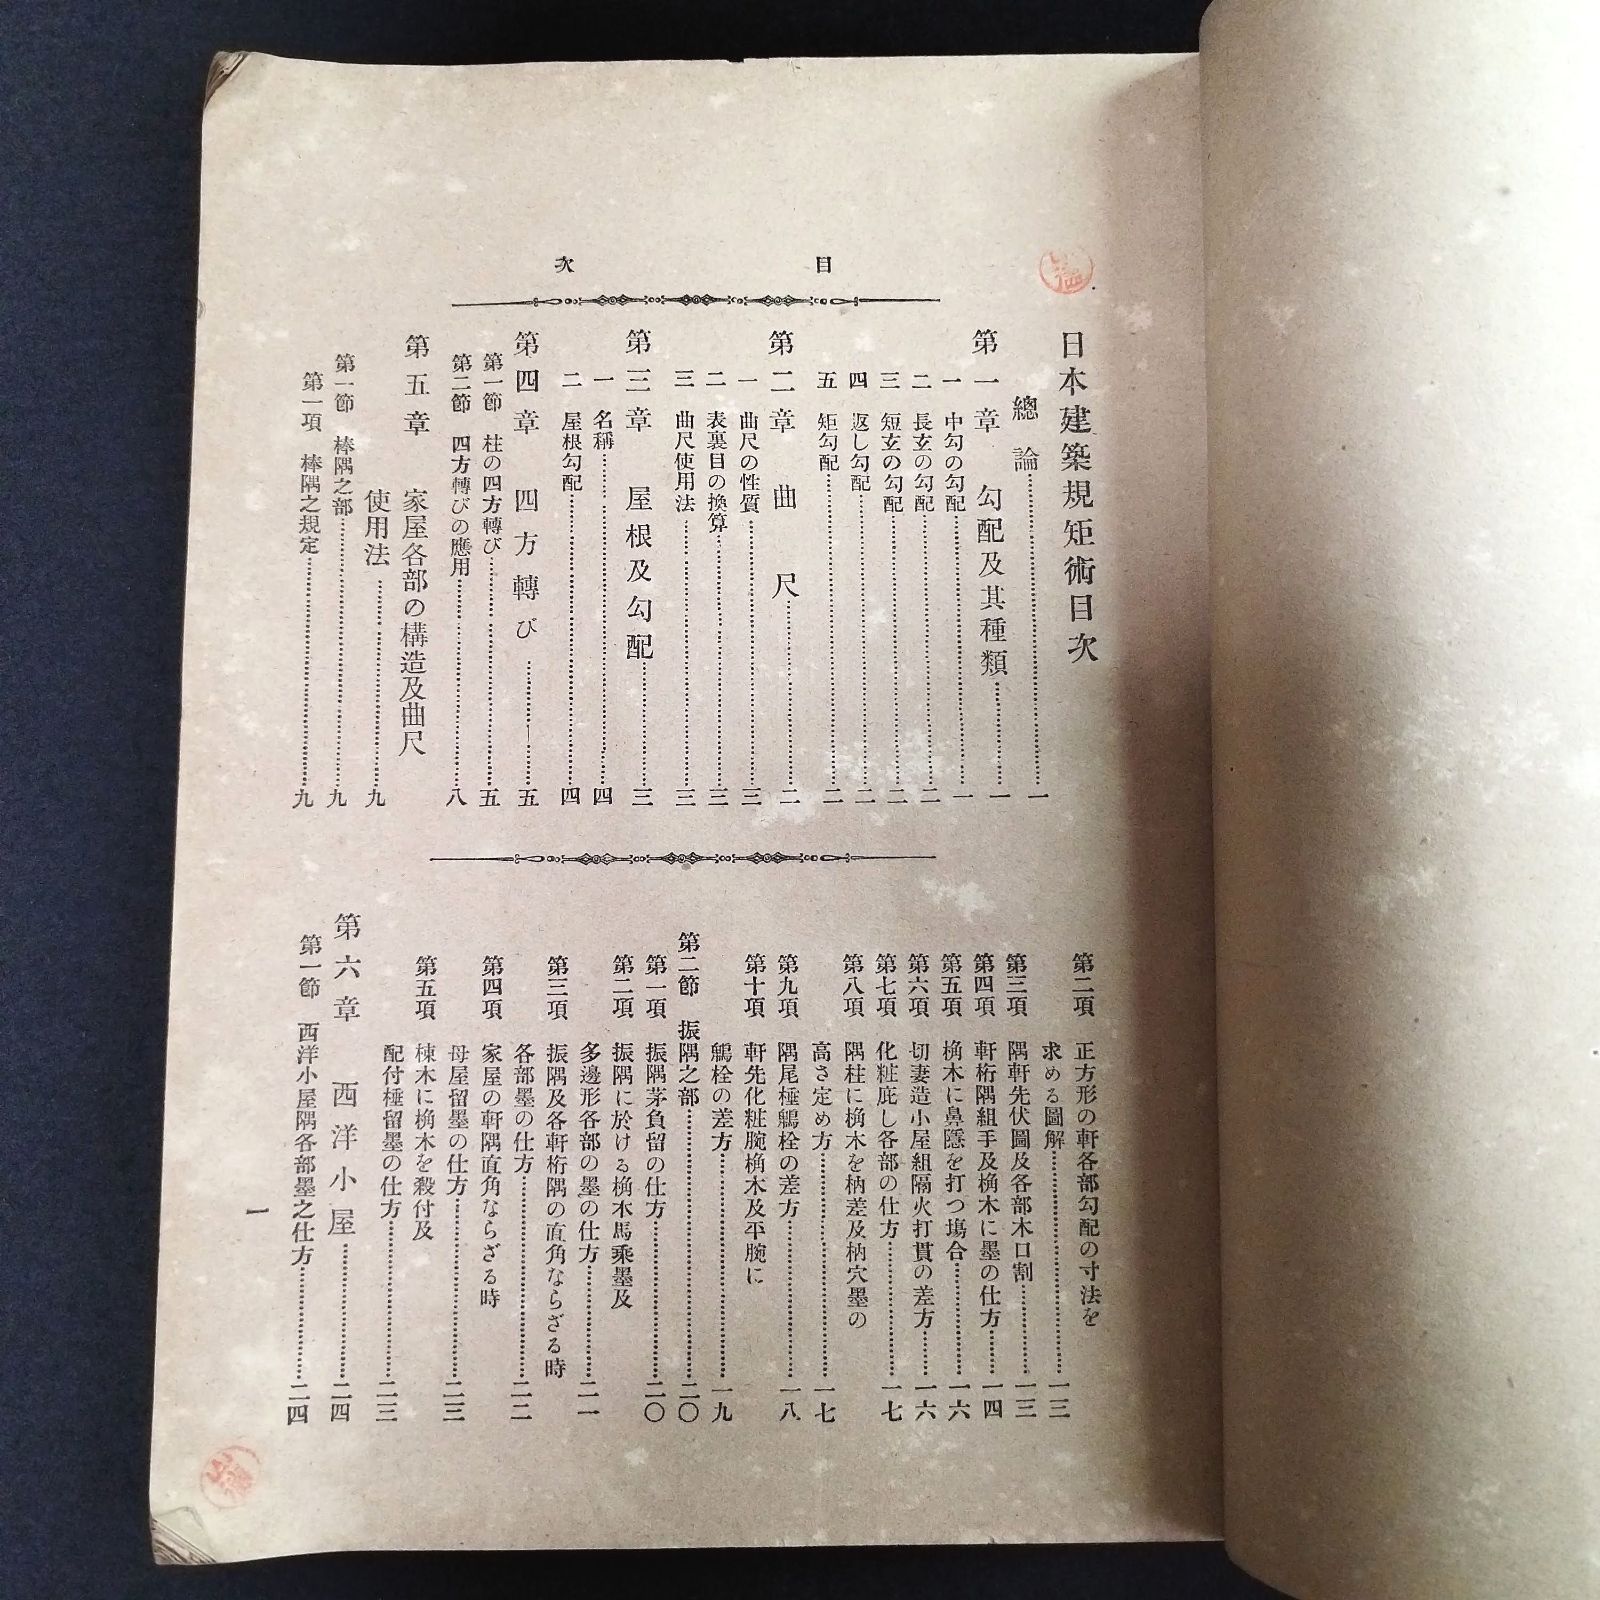 目次
日本建築規矩術目次
總論…………一
第一章 勾配及其種類…………一
一 中勾の勾配…………一
二 長玄の勾配…………二
三 短玄の勾配…………二
四 返し勾配…………二
五 矩勾配…………二
第二章 曲尺…………二
一 曲尺の性質…………三
二 表裏目の換算…………三
三 曲尺使用法…………三
第三章 屋根及勾配…………三
一 名稱…………四
二 屋根勾配…………四
第四章 四方轉び…………五
第一節 柱の四方轉び…………五
第二節 四方轉びの應用…………八
第五章 家屋各部の構造及曲尺
使用法…………九
第一節 棒隅之部…………九
第一項 棒隅之規定…………九
第二項 正方形の軒各部勾配の寸法を
求める圖解…………一三
第三項 隅軒先伏圖及各部木口割…………一三
第四項 軒桁隅組手及桷木に墨の仕方…………一四
第五項 桷木に鼻隱を打つ塲合…………一六
第六項 切妻造小屋組隔火打貫の差方…………一六
第七項 化粧庇し各部の仕方…………一七
第八項 隅柱に桷木を枘差及枘穴墨の
高さ定め方…………一七
第九項 隅尾棰鶺栓の差方…………一八
第十項 軒先化粧腕桷木及平腕に
鶺栓の差方…………一九
第二節 振隅之部…………二〇
第一項 振隅茅負留の仕方…………二〇
第二項 振隅に於ける桷木馬乘墨及
多邊形各部の墨の仕方…………二一
第三項 振隅及各軒桁隅の直角ならざる時
各部墨の仕方…………二二
第四項 家屋の軒隅直角ならざる時
母屋留墨の仕方…………二三
第五項 棟木に桷木を殺付及
配付棰留墨の仕方…………二三
第六章 西洋小屋…………二四
第一節 西洋小屋隅各部墨之仕方…………二四
一